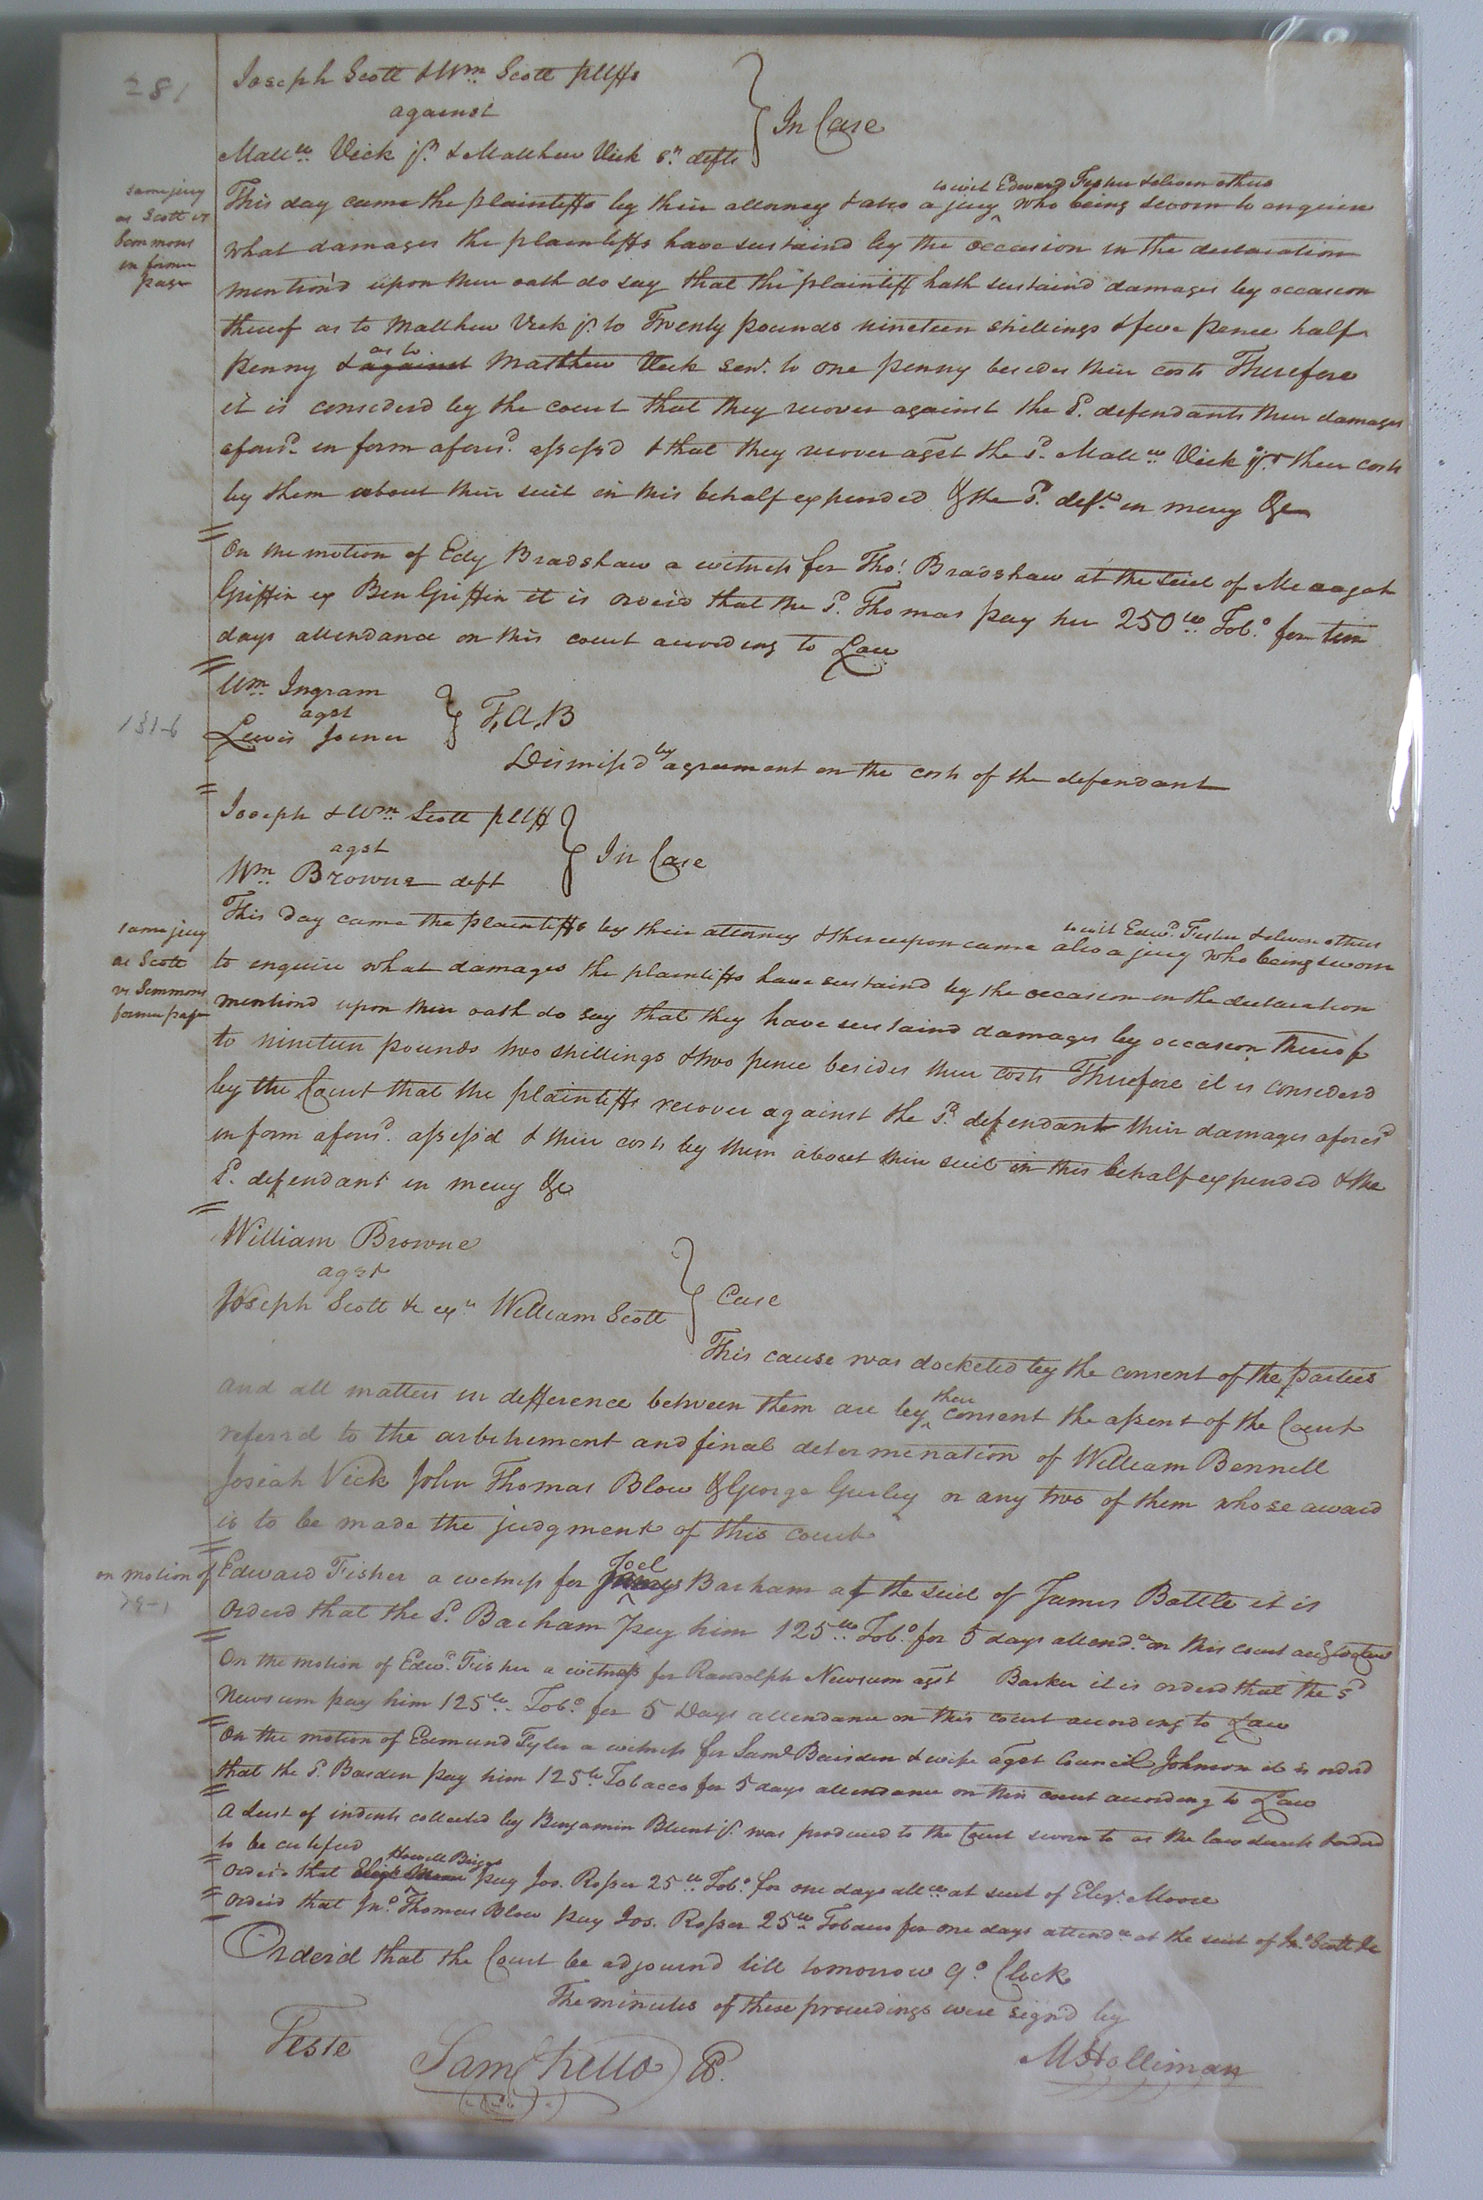 281
Joseph Scott & Wm. Scott pltffs
against
Matt.w Vick jr. & Matthew Vick sr. defts
In Case
same jury
as Scott vs
Simmons
in former
page
to wit Edward Fisher & eleven others
This day came the plaintiffs by their attorney & also a jury ^ who being sworn to enquire
what damages the plaintiffs have sustaind by the occasion in the declaration
mention'd upon their oath do say that the plaintiff hath sustain'd damages by occasion
thereof as to Matthew Vick jr. to Twenty pounds nineteen shillings & five pence half
as to
penny & against Matthew Vick senr. to one penny besides their costs Therefore
it is considerd by the court that they recover against the sd. defendants their damages
aforesd. in form aforesd. assess'd & that they recover agst the sd. Matt.w Vick jr. their costs
by them about their suit in this behalf expended & the sd. deft. in mercy &c
On the motion of Edy Bradshaw a witness for Thos. Bradshaw at the suit of
Griffin ex Ben Griffin it is orderd that the sd. Thomas pay her 250 lb. Tobo. for ten
days attendance on this court according to Law
Wm. Ingram
agst
Lewis Joener
T, A, B
131-6
Dismiss'd by agreement on the costs of the defendant
Joseph & Wm. Scott pltff
agst
Wm. Browne deft
In Case
same jury
as Scott
vs Simmons
former page
to wit Edwd. Fisher & eleven others
This Day came the plaintiffs by their attorney & thereupon came also a jury who being sworn
to enquire what damages the plaintiffs have sustaind by the occasion in the declaration
mentiond upon their oath do say that they have sustaind damages by occasion thereof
to nineteen pounds two shillings & two pence besides their costs Therefore it is considerd
by the Court that the plaintiffs recover against the sd. defendant their damages aforesd
in form aforesd. assess'd & their costs by them about their suit in this behalf expended & the
sd. defendant in mercy &c
William Browne
agst
Joseph Scott & exr. William Scott
Case
This cause was docketed by the consent of the parties
their
and all matters in difference between them are by ^ consent the assent of the Court
referrd to the arbitrement and final determination of William Bennett
Josiah Vick John Thomas Blow & George Gurley or any two of them whose award
is to be made the judgment of this court
on motion of
Joel
Edward Fisher a witness for James Barham at the suit of James Battle it is
orderd that the sd. Barham pay him 125 lb. Tobo. for 5 days attendce. on this court accg to Law
On the motion of Edwd. Fisher a witness for Randolph Newsum agst Barker it is orderd that the sd
Newsum pay him 125 lb. Tobo. for 5 Days attendance on this court according to Law
On the motion of Edmund Tyler a witness for Saml Bairden & wife agst Council Johnson it is orderd
that the sd. Barden pay him 125 lb Tobacco for 5 days attendance on this court according to Law
A List of indents collected by Benjamin Blunt jr. was produced to the Court sworn to as the law directs & orderd
to be certified
Howell Briggs
Order'd that pay Jos. Roper 25 lb Tobo. for one days attce at suit of Moore
Order'd that Jno. Thomas Blow pay Jos. Roper 25 lb Tobacco for one days attendce at the suit of Jno. Scott &c
Orderd that the Court be adjournd till tomorrow 9 o Clock
The minutes of these proceedings were signd by
M Holliman
Teste
Sam Kello